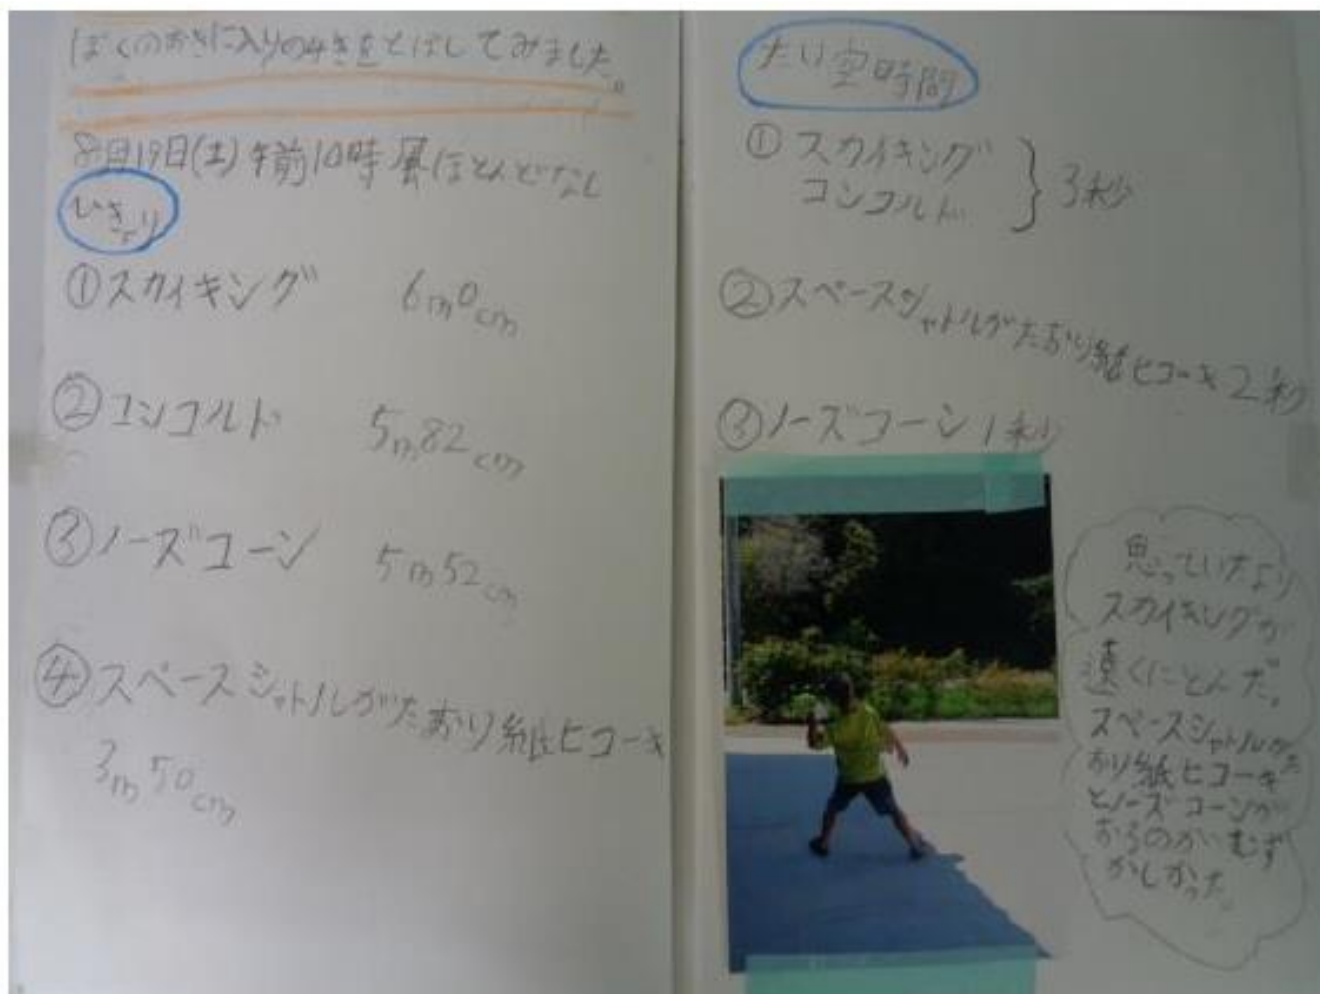 ぼくのおきに入りの4きをとばしてみました。
8月19日(土)午前10時 風ほとんどなし
ひきょり
①スカイキング 6m0cm
②コンコルド 5m82cm
③ノーズコーン 5m52cm
④スペースシャトルがたおり紙ヒコーキ
3m50cm
たい空時間
①スカイキング
コンコルド } 3秒
②スペースシャトルがたおり紙ヒコーキ2秒
③ノーズコーン1秒
思っていたより
スカイキングが
遠くにとんだ。
スペースシャトルがた
おり紙ヒコーキ
とノーズコーンが
おるのがむず
かしかった。